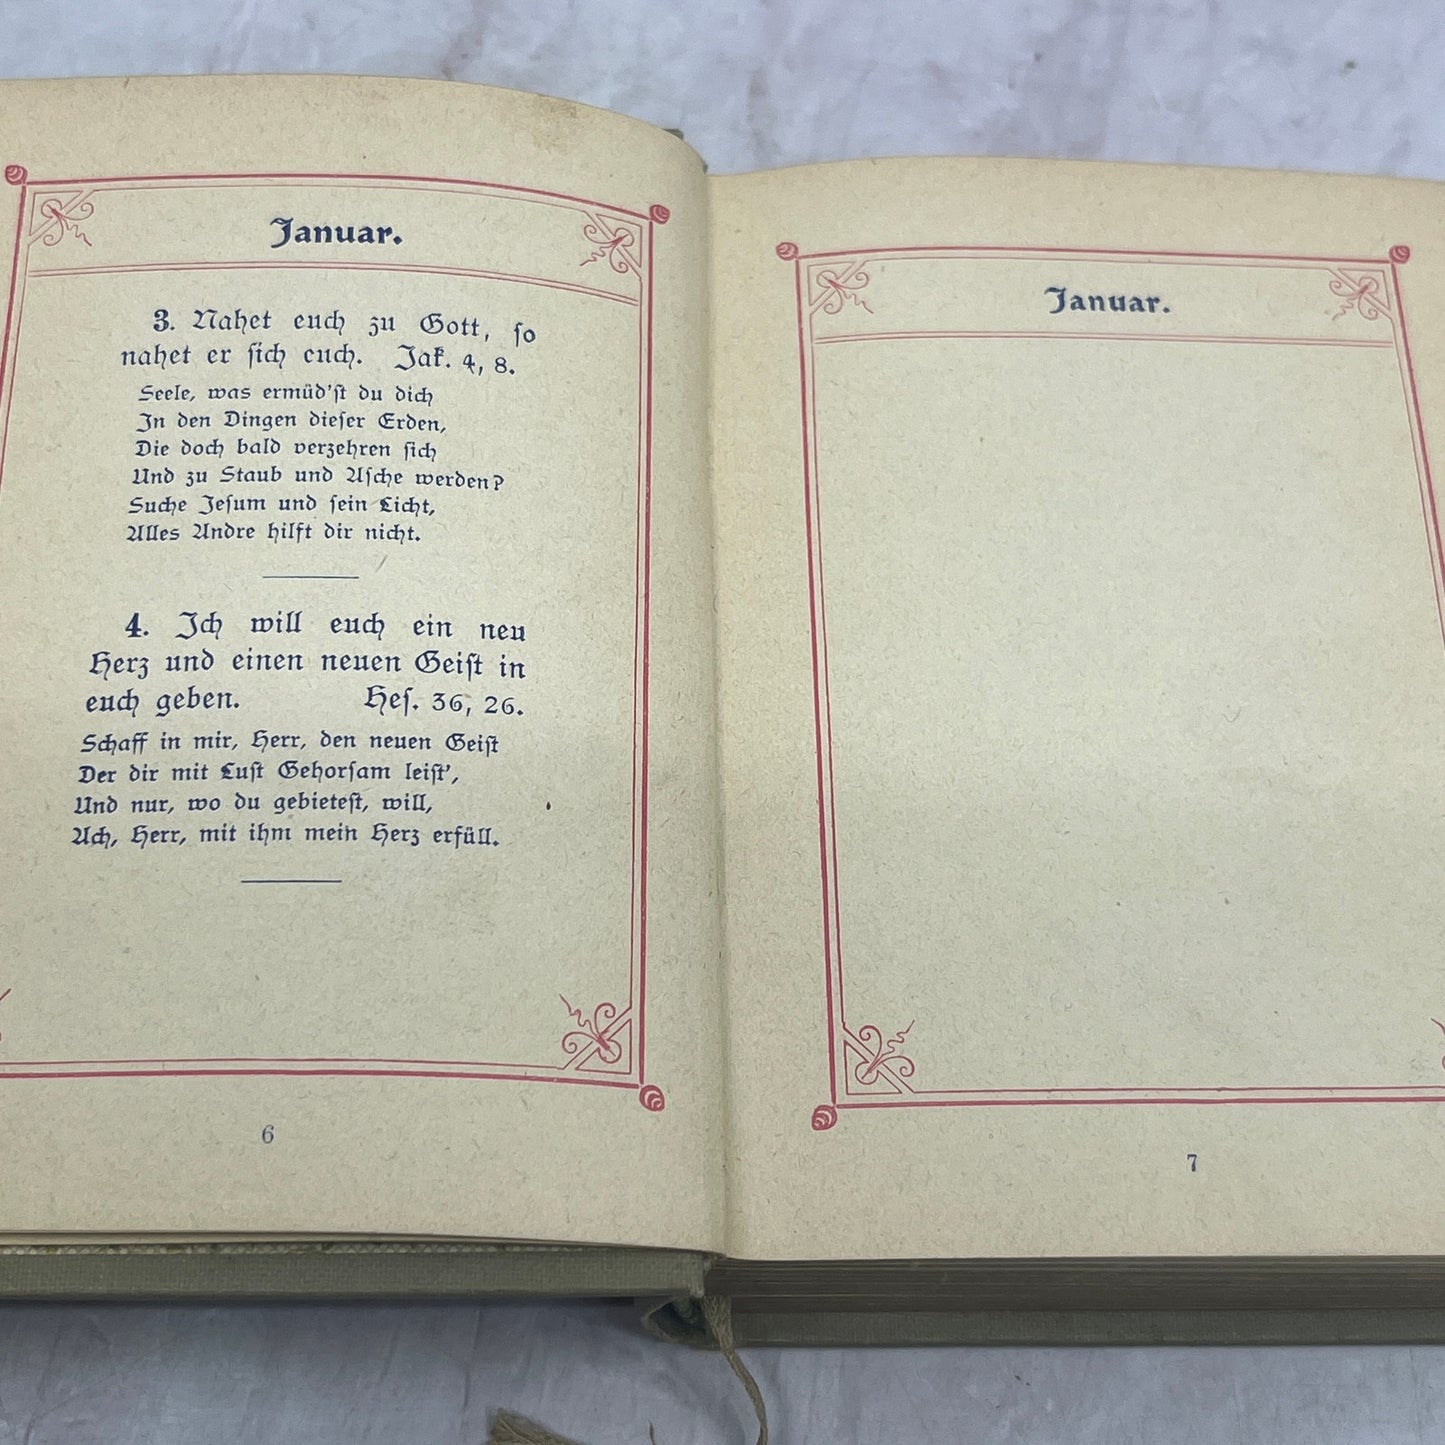 Januar.
3. Nahet euch zu Gott, ſo
nahet er ſich euch. Jak. 4, 8.
Seele, was ermüd'ſt du dich
In den Dingen dieſer Erden,
Die doch bald verzehren ſich
Und zu Staub und Aſche werden?
Suche Jeſum und ſein Licht,
Alles Andre hilft dir nicht.
4. Ich will euch ein neu
Herz und einen neuen Geiſt in
euch geben. Heſ. 36, 26.
Schaff in mir, Herr, den neuen Geiſt
Der dir mit Luſt Gehorſam leiſt',
Und nur, wo du gebieteſt, will,
Ach, Herr, mit ihm mein Herz erfüll.
6
Januar.
7